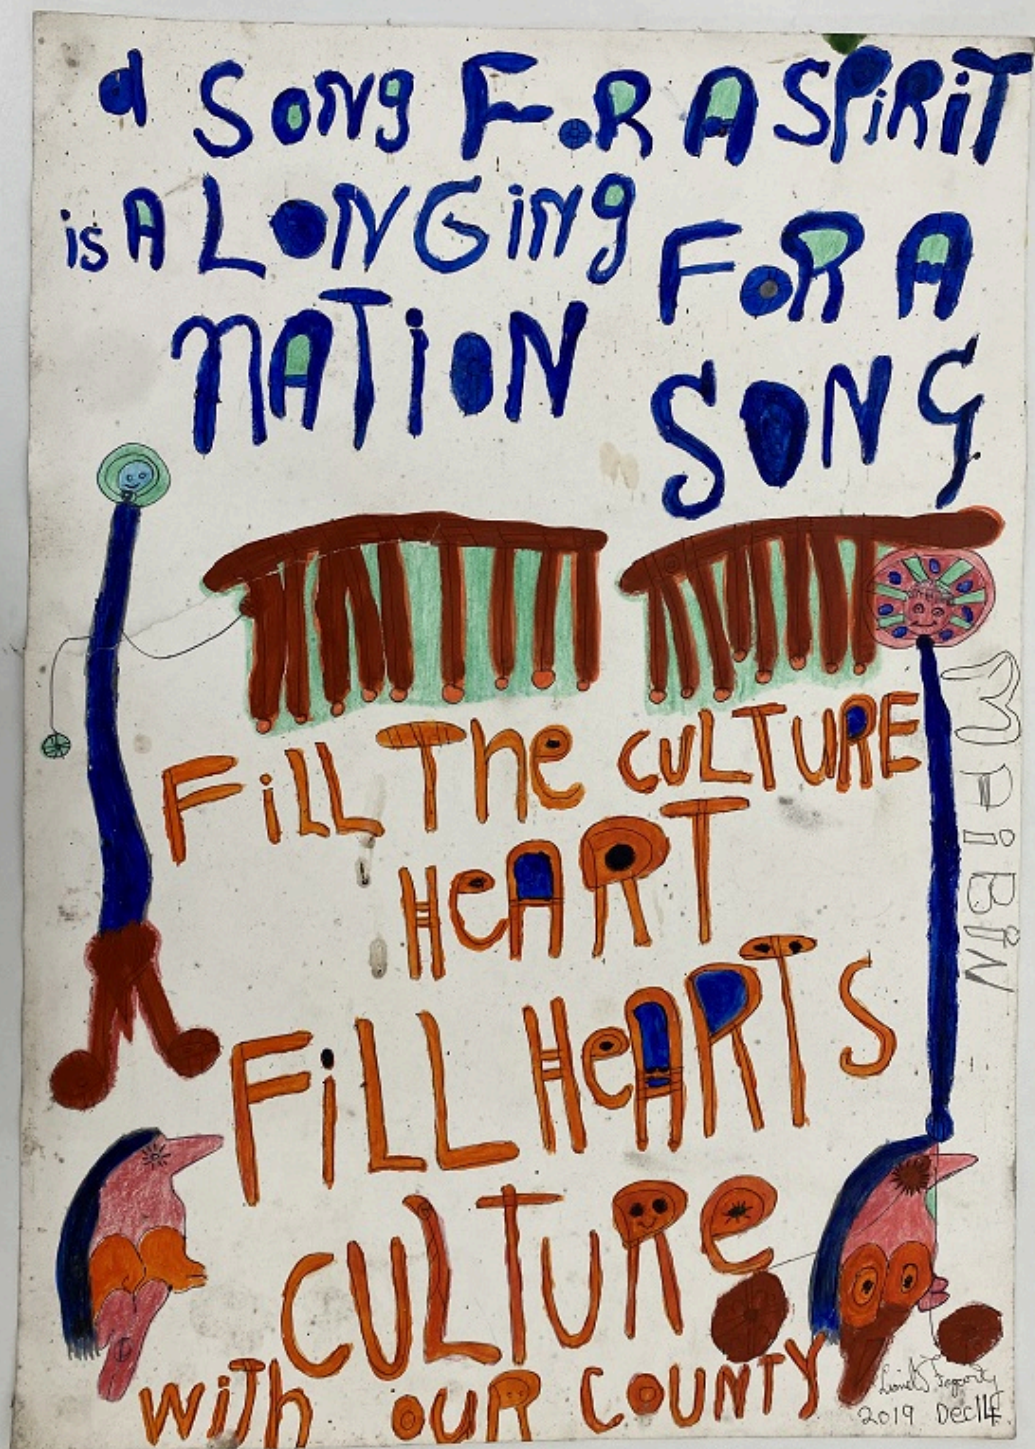 a SONg FOR A SPiRiT
is A LONGiNg FOR A
NATiON SONG
FiLL The CULTURE
HeART
FiLL HeARTS
CULTURe
with OUR COUNTY
MPiBiN
Lionel Fogarty
2019 Dec 14